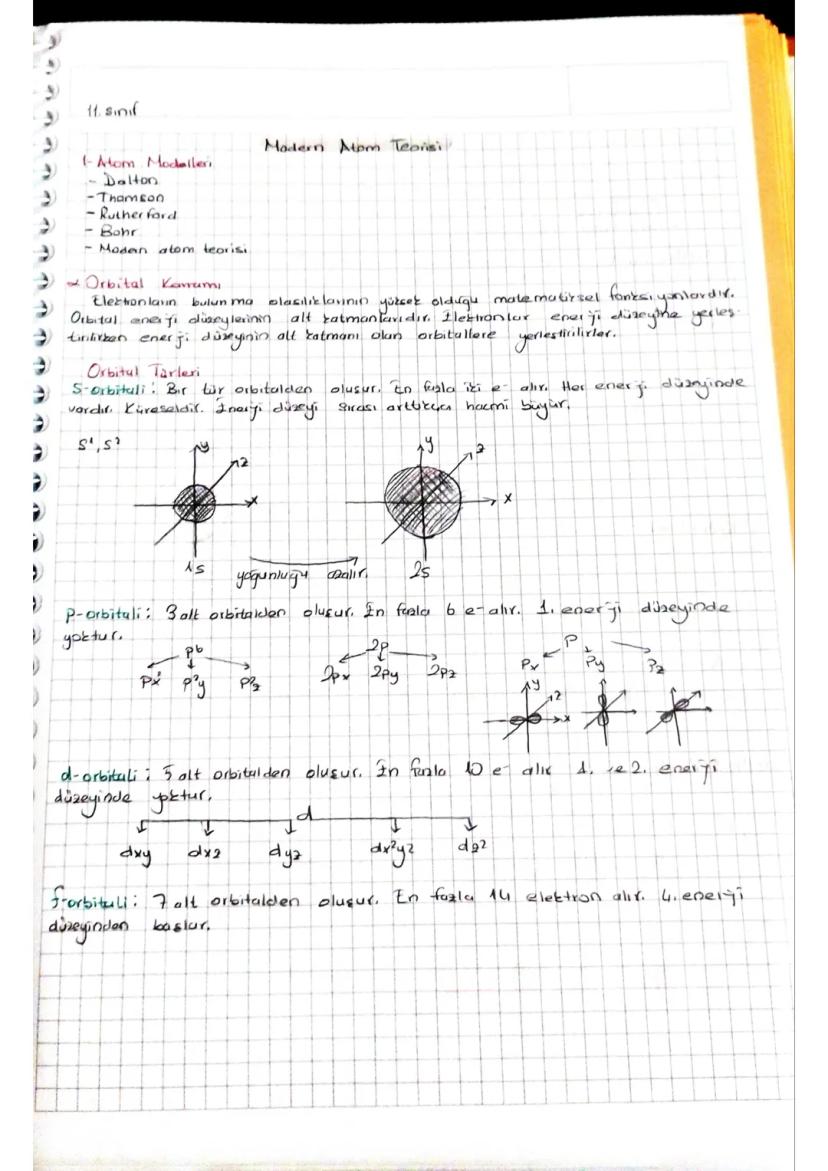 11. sınıf
Modern Atom Teorisi
1- Atom Modelleri
- Dalton
- Thomson
- Rutherford
- Bohr
- Modern atom teorisi
Orbital Kavramı
Elektronların bulunma olasılıklarının yüksek olduğu matematiksel fonksiyonlardır.
Orbital enerji düzeylerinin alt katmanlarıdır. Elektronlar enerji düzeyine yerleş-
tirilirken enerji düzeyinin alt katmanı olan orbitallere yerleştirilirler.
Orbital Türleri
S-orbitali: Bir tür orbitalden oluşur. En fazla iki e- alır. Her enerji düzeyinde
vardır. Küreseldir. Enerji düzeyi sırası arttıkça hacmi büyür.
S¹, S²
y z x
y z x
1s yoğunluğu azalır. 2s
p-orbitali: 3 alt orbitalden oluşur. En fazla 6 e- alır. 1. enerji düzeyinde
yoktur.
p6 2p P
p²y p²z 2px 2py 2pz Px Py Pz
y z x
d-orbitali: 5 alt orbitalden oluşur. En fazla 10 e- alır 1. ve 2. enerji
düzeyinde yoktur.
d
dxy dxz dyz dx²y² dz²
f-orbitali: 7 alt orbitalden oluşur. En fazla 14 elektron alır. 4. enerji
düzeyinden başlar.